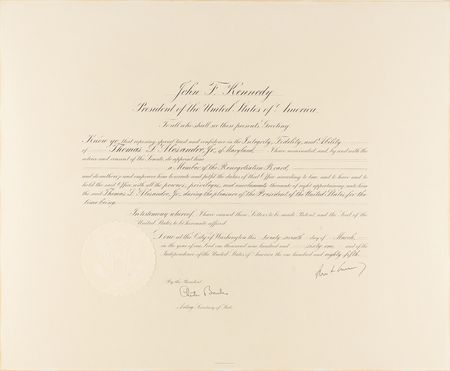 John F. Kennedy
President of the United States of America.
To all who shall see these presents, Greeting:
Know ye, that reposing special trust and confidence in the Integrity, Fidelity, and Ability
of Thomas D'Alesandro, Jr., of Maryland, I have nominated, and by and with the
advice and consent of the Senate, do appoint him
a Member of the Renegotiation Board,
and do authorize and empower him to execute and fulfil the duties of that Office according to law, and to have and to
hold the said Office, with all the powers, privileges, and emoluments thereunto of right appertaining, unto him
the said Thomas D'Alesandro, Jr., during the pleasure of the President of the United States for the
time being.
In testimony whereof, I have caused these Letters to be made Patent and the Seal of the
United States to be hereunto affixed.
Done at the City of Washington this day of March,
in the year of our Lord one thousand nine hundred and sixty-one and of the
Independence of the United States of America the one hundred and eighty-fifth.
By the President:
Acting Secretary of State.